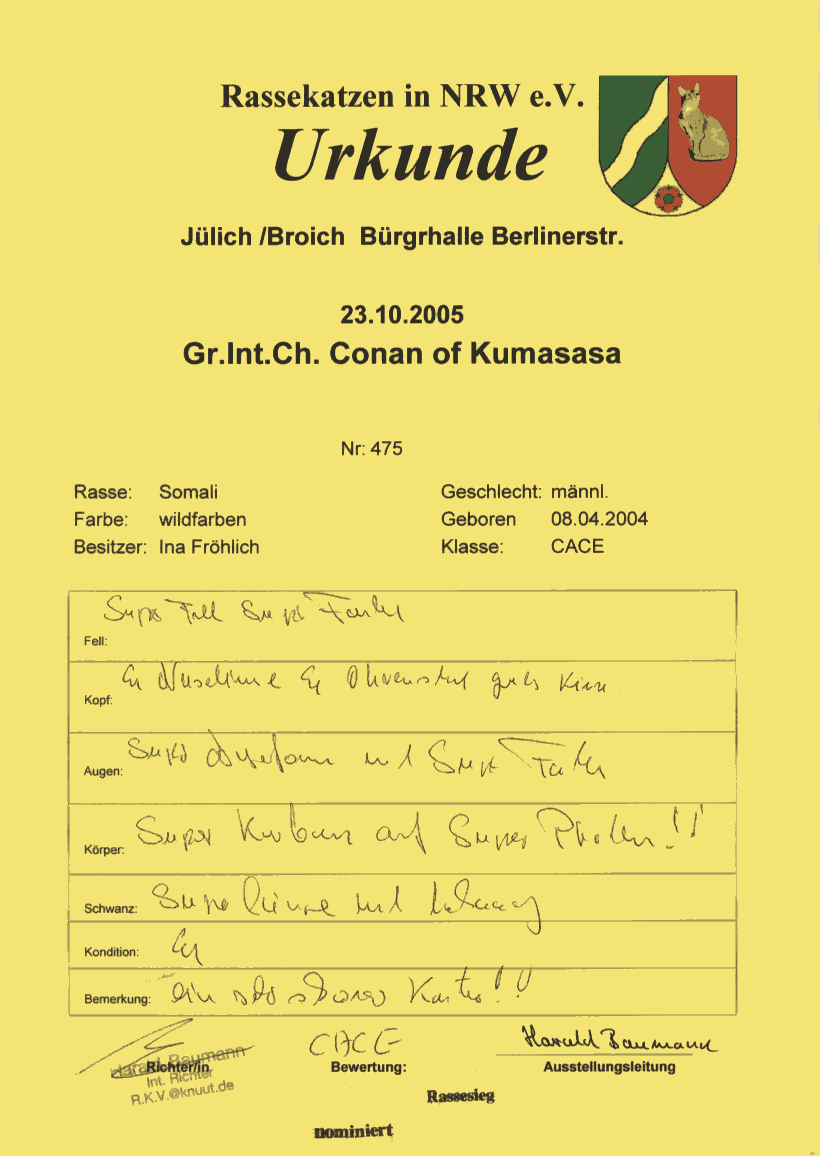 Rassekatzen in NRW e.V.
Urkunde
Jülich /Broich Bürgrhalle Berlinerstr.
23.10.2005
Gr.Int.Ch. Conan of Kumasasa
Nr: 475
Rasse: Somali
Geschlecht: männl.
Farbe: wildfarben
Geboren 08.04.2004
Besitzer: Ina Fröhlich
Klasse: CACE
Super Fell Super
Fell:
Kopf: Ex Ex gutes Kinn
Augen: Super mit Super
Körper: Super auf Super Pfoten!!
Schwanz: Super Länge mit
Kondition: Ex
Bemerkung: Ein Kater!!
CACE
Harald Baumann
Harald Baumann
Richter/in
Bewertung:
Ausstellungsleitung
Int. Richter
R.K.V.@knuut.de
Rassesieg
nominiert